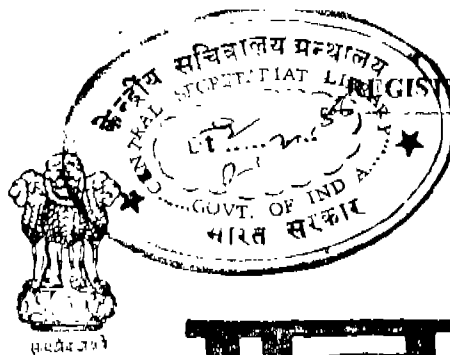 केन्द्रीय सचिवालय ग्रन्थालय
CENTRAL SECRETATIAT LIBRARY
REGIST
GOVT. OF INDIA
भारत सरकार
सत्यमेव जयते